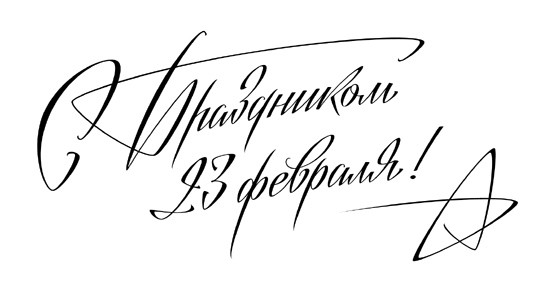 С Праздником
23 февраля!